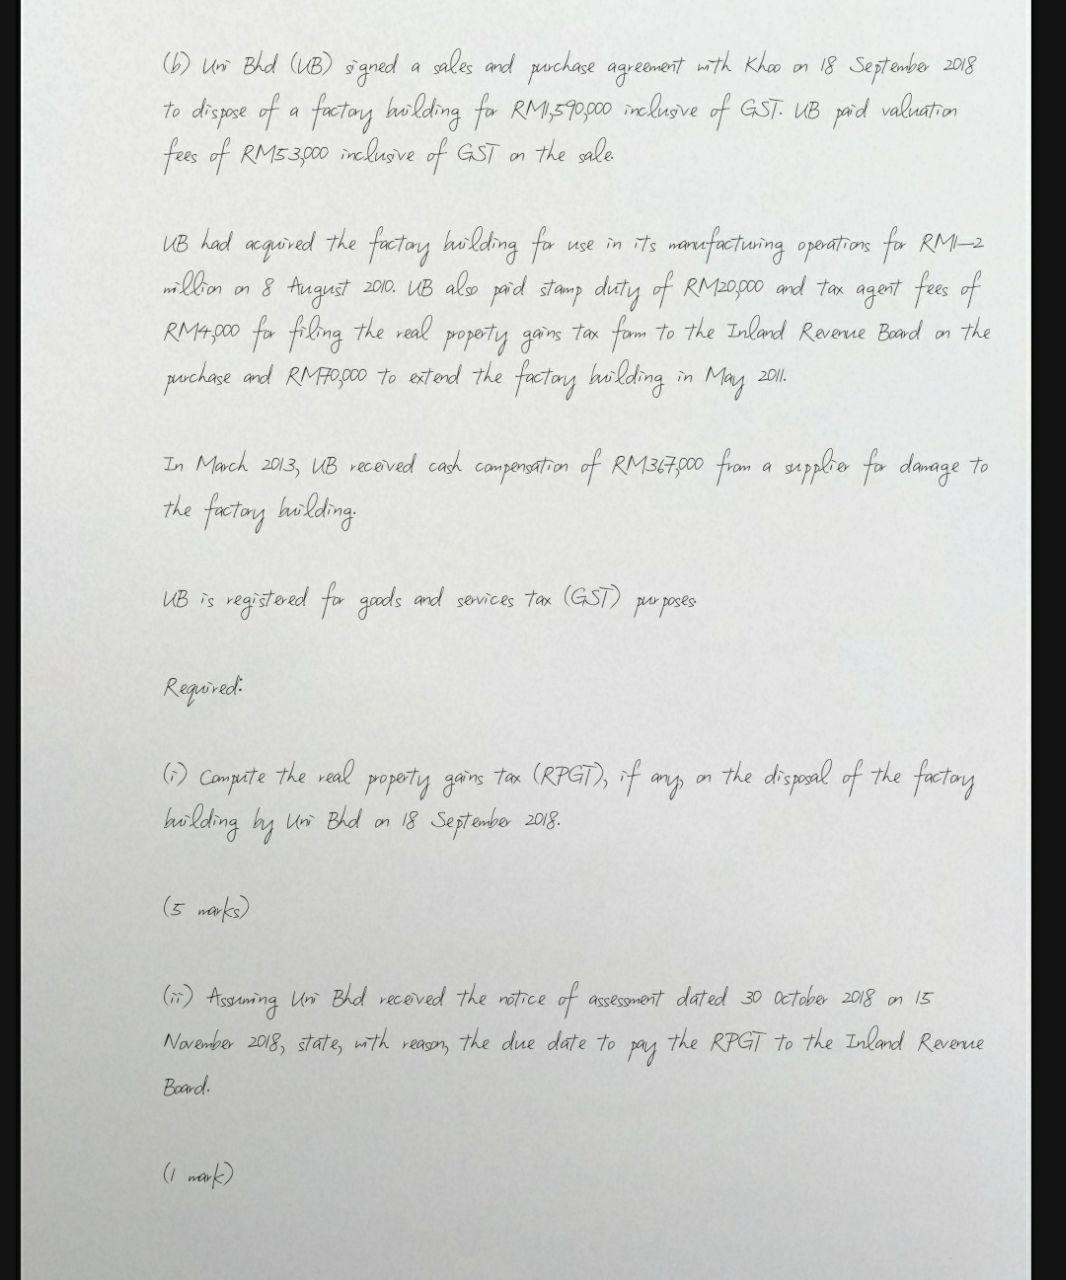 (b) Uni Bhd (UB) signed a sales and purchase agreement with Khoo on 18 September 2018
to dispose of a factory building for RM1,590,000 inclusive of GST. UB paid valuation
fees of RM53,000 inclusive of GST on the sale.
UB had acquired the factory building for use in its manufacturing operations for RM1–2
million on 8 August 2010. UB also paid stamp duty of RM20,000 and tax agent fees of
RM4,000 for filing the real property gains tax form to the Inland Revenue Board on the
purchase and RM70,000 to extend the factory building in May 2011.
In March 2013, UB received cash compensation of RM367,000 from a supplier for damage to
the factory building.
UB is registered for goods and services tax (GST) purposes.
Required:
(i) Compute the real property gains tax (RPGT), if any, on the disposal of the factory
building by Uni Bhd on 18 September 2018.
(5 marks)
(ii) Assuming Uni Bhd received the notice of assessment dated 30 October 2018 on 15
November 2018, state, with reason, the due date to pay the RPGT to the Inland Revenue
Board.
(1 mark)